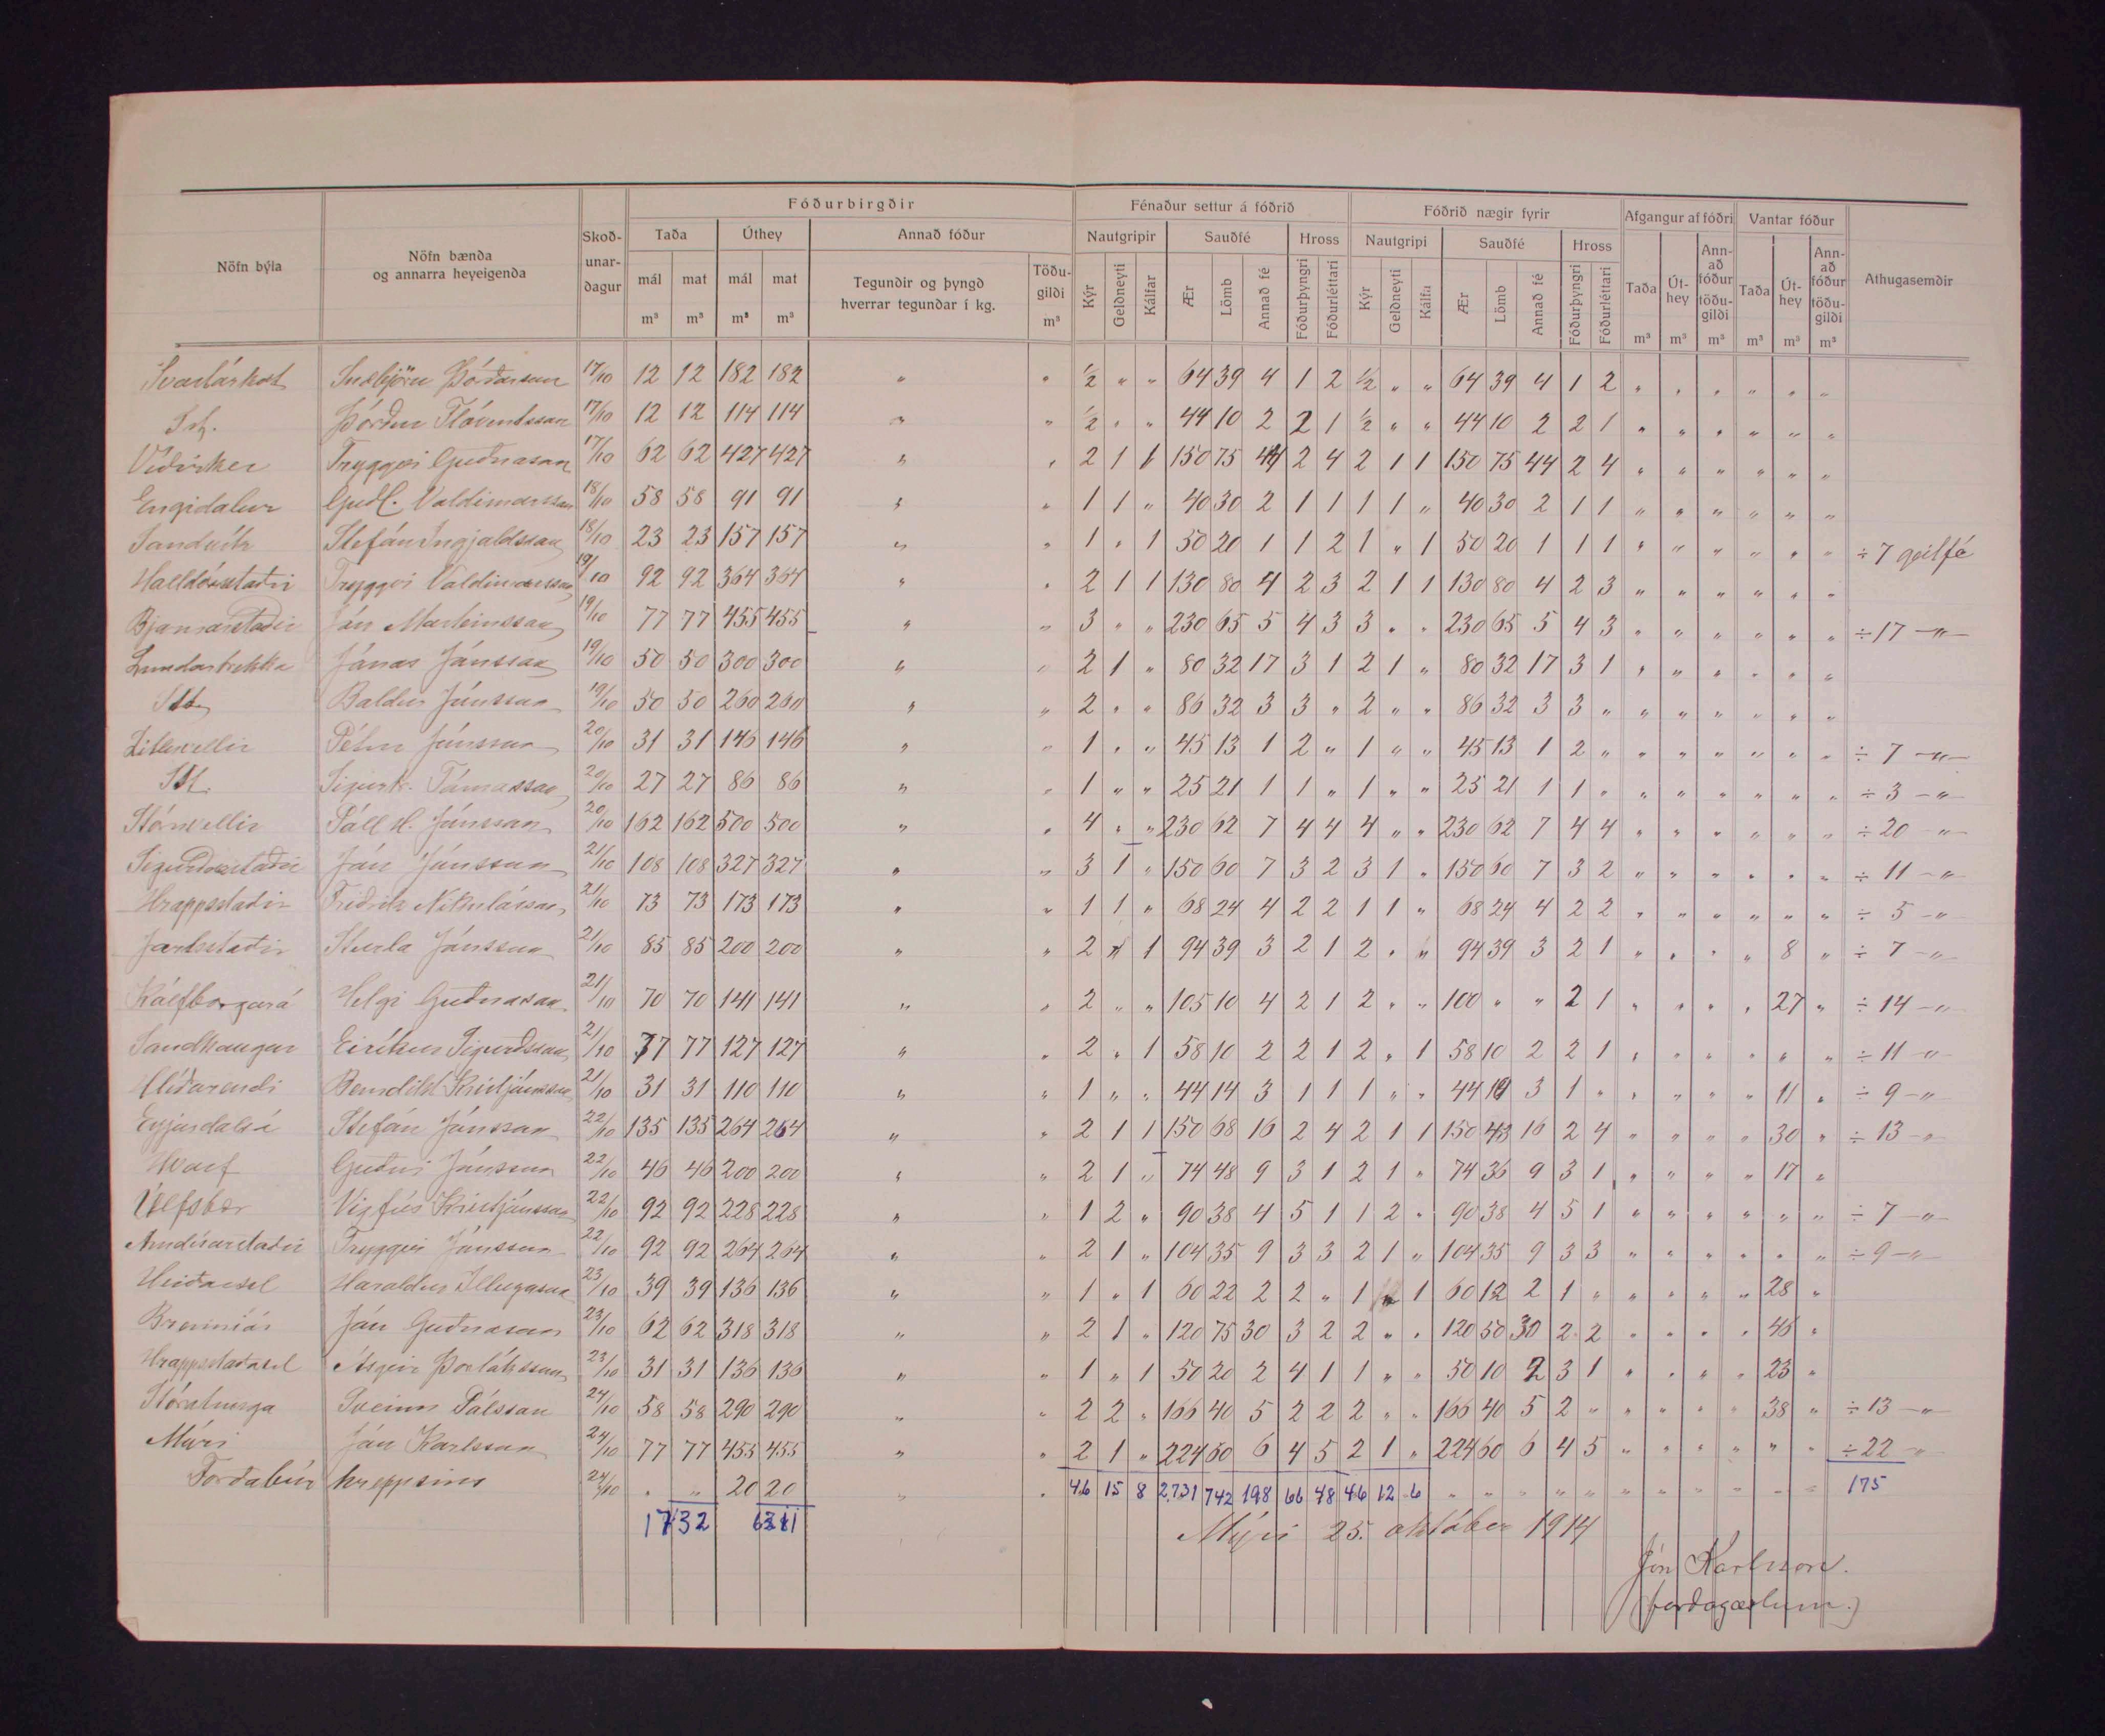 Fóðurbirgðir Fénaður settur á fóðrið Fóðrið nægir fyrir Afgangur af fóðri Vantar fóður
Nöfn býla Nöfn bænda og annarra heyeigenda Skoð-unar-dagur Taða Úthey Annað fóður Nautgripir Sauðfé Hross Nautgripi Sauðfé Hross Taða Út-hey Ann-að fóður töðu-gildi Taða Út-hey Ann-að fóður töðu-gildi Athugasemdir
mál mat mál mat Tegundir og þyngd hverrar tegundar í kg. Töðu-gildi Kýr Geldneyti Kálfar Ær Lömb Annað fé Fóðurþyngri Fóðurléttari Kýr Geldneyti Kálfa Ær Lömb Annað fé Fóðurþyngri Fóðurléttari
m³ m³ m³ m³ m³ m³ m³ m³ m³ m³ m³
Svartárkot Snæbjörn Þórðarson 17/10 12 12 182 182 " " ½ " " 64 39 4 1 2 ½ " " 64 39 4 1 2 " " " " " "
Þórður Flóventsson 17/10 12 12 114 114 " " ½ " " 44 10 2 2 1 ½ " " 44 10 2 2 1 " " " " " "
Víðirker Tryggvi Guðnason 17/10 62 62 427 427 " " 2 1 1 150 75 44 2 4 2 1 1 150 75 44 2 4 " " " " " "
Engidalur Guðl. Valdimarsson 18/10 58 58 91 91 " " 1 1 " 40 30 2 1 1 1 1 " 40 30 2 1 1 " " " " " "
Sandvík Stefán Ingjaldsson 18/10 23 23 157 157 " " 1 " 1 50 20 1 1 2 1 " 1 50 20 1 1 1 " " " " " " ÷ 7 geitfé
Halldórsstaðir Tryggvi Valdimarsson 19/10 92 92 364 364 " " 2 1 1 130 80 4 2 3 2 1 1 130 80 4 2 3 " " " " " "
Bjarnarstaðir Jón Marteinsson 19/10 77 77 455 455 " " 3 " " 230 65 5 4 3 3 " " 230 65 5 4 3 " " " " " " ÷ 17 -"-
Lundarbrekka Jónas Jónsson 19/10 50 50 300 300 " " 2 1 " 80 32 17 3 1 2 1 " 80 32 17 3 1 " " " " " "
Baldur Jónsson 19/10 50 50 260 260 " " 2 " " 86 32 3 3 " 2 " " 86 32 3 3 " " " " " " "
Litluvellir Pétur Jónsson 20/10 31 31 146 146 " " 1 " " 45 13 1 2 " 1 " " 45 13 1 2 " " " " " " " ÷ 7 -"-
Sigurk. Tómasson 20/10 27 27 86 86 " " 1 " " 25 21 1 1 " 1 " " 25 21 1 1 " " " " " " " ÷ 3 -"-
Stóruvellir Páll H. Jónsson 20/10 162 162 500 500 " " 4 " " 230 62 7 4 4 4 " " 230 62 7 4 4 " " " " " " ÷ 20 -"-
Sigurðarstaðir Jón Jónsson 21/10 108 108 327 327 " " 3 1 " 150 60 7 3 2 3 1 " 150 60 7 3 2 " " " " " " ÷ 11 -"-
Hrappsstaðir Friðrik Nikulásson 21/10 73 73 173 173 " " 1 1 " 68 24 4 2 2 1 1 " 68 24 4 2 2 " " " " " " ÷ 5 -"-
Jarlsstaðir Sturla Jónsson 21/10 85 85 200 200 " " 2 " 1 94 39 3 2 1 2 " " 94 39 3 2 1 " " " " 8 " ÷ 7 -"-
Kálfborgará Helgi Guðnason 21/10 70 70 141 141 " " 2 " " 105 10 4 2 1 2 " " 100 " " 2 1 " " " " 27 " ÷ 14 -"-
Sandhaugar Eiríkur Sigurðsson 21/10 77 77 127 127 " " 2 " 1 58 10 2 2 1 2 " 1 58 10 2 2 1 " " " " " " ÷ 11 -"-
Hlíðarendi Benedikt Kristjánsson 21/10 31 31 110 110 " " 1 " " 44 14 3 1 1 1 " " 44 14 3 1 " " " " " 11 " ÷ 9 -"-
Eyjardalsá Stefán Jónsson 22/10 135 135 264 264 " " 2 1 1 150 68 16 2 4 2 1 1 150 48 16 2 4 " " " " 30 " ÷ 13 -"-
Hvarf Guðni Jónsson 22/10 46 46 200 200 " " 2 1 " 74 48 9 3 1 2 1 " 74 36 9 3 1 " " " " 17 "
Úlfsbær Vigfús Kristjánsson 22/10 92 92 228 228 " " 1 2 " 90 38 4 5 1 1 2 " 90 38 4 5 1 " " " " " " ÷ 7 -"-
Arndísarstaðir Tryggvi Jónsson 22/10 92 92 264 264 " " 2 1 " 104 35 9 3 3 2 1 " 104 35 9 3 3 " " " " " " ÷ 9 -"-
Heiðarsel Haraldur Illugason 23/10 39 39 136 136 " " 1 " 1 60 22 2 2 " 1 " 1 60 12 2 1 " " " " " 28 "
Brenniás Jón Guðnason 23/10 62 62 318 318 " " 2 1 " 120 75 30 3 2 2 " " 120 50 30 2 2 " " " " 46 "
Hrappsstaðasel Ásgeir Þorláksson 23/10 31 31 136 136 " " 1 " 1 50 20 2 4 1 1 " " 50 10 2 3 1 " " " " 23 "
Stóratunga Sveinn Pálsson 24/10 58 58 290 290 " " 2 2 " 166 40 5 2 2 2 " " 166 40 5 2 " " " " " 38 " ÷ 13 -"-
Mýri Jón Karlsson 24/10 77 77 455 455 " " 2 1 " 224 60 6 4 5 2 1 " 224 60 6 4 5 " " " " " " ÷ 22 -"-
Forðabúr hreppsins 24/10 " " 20 20 " " 46 15 8 2731 742 198 66 48 46 12 6 " " " " " " " " " " " 175
1732
Mýri 25. október 1914
Jón Karlsson.
(forðagæslum.)